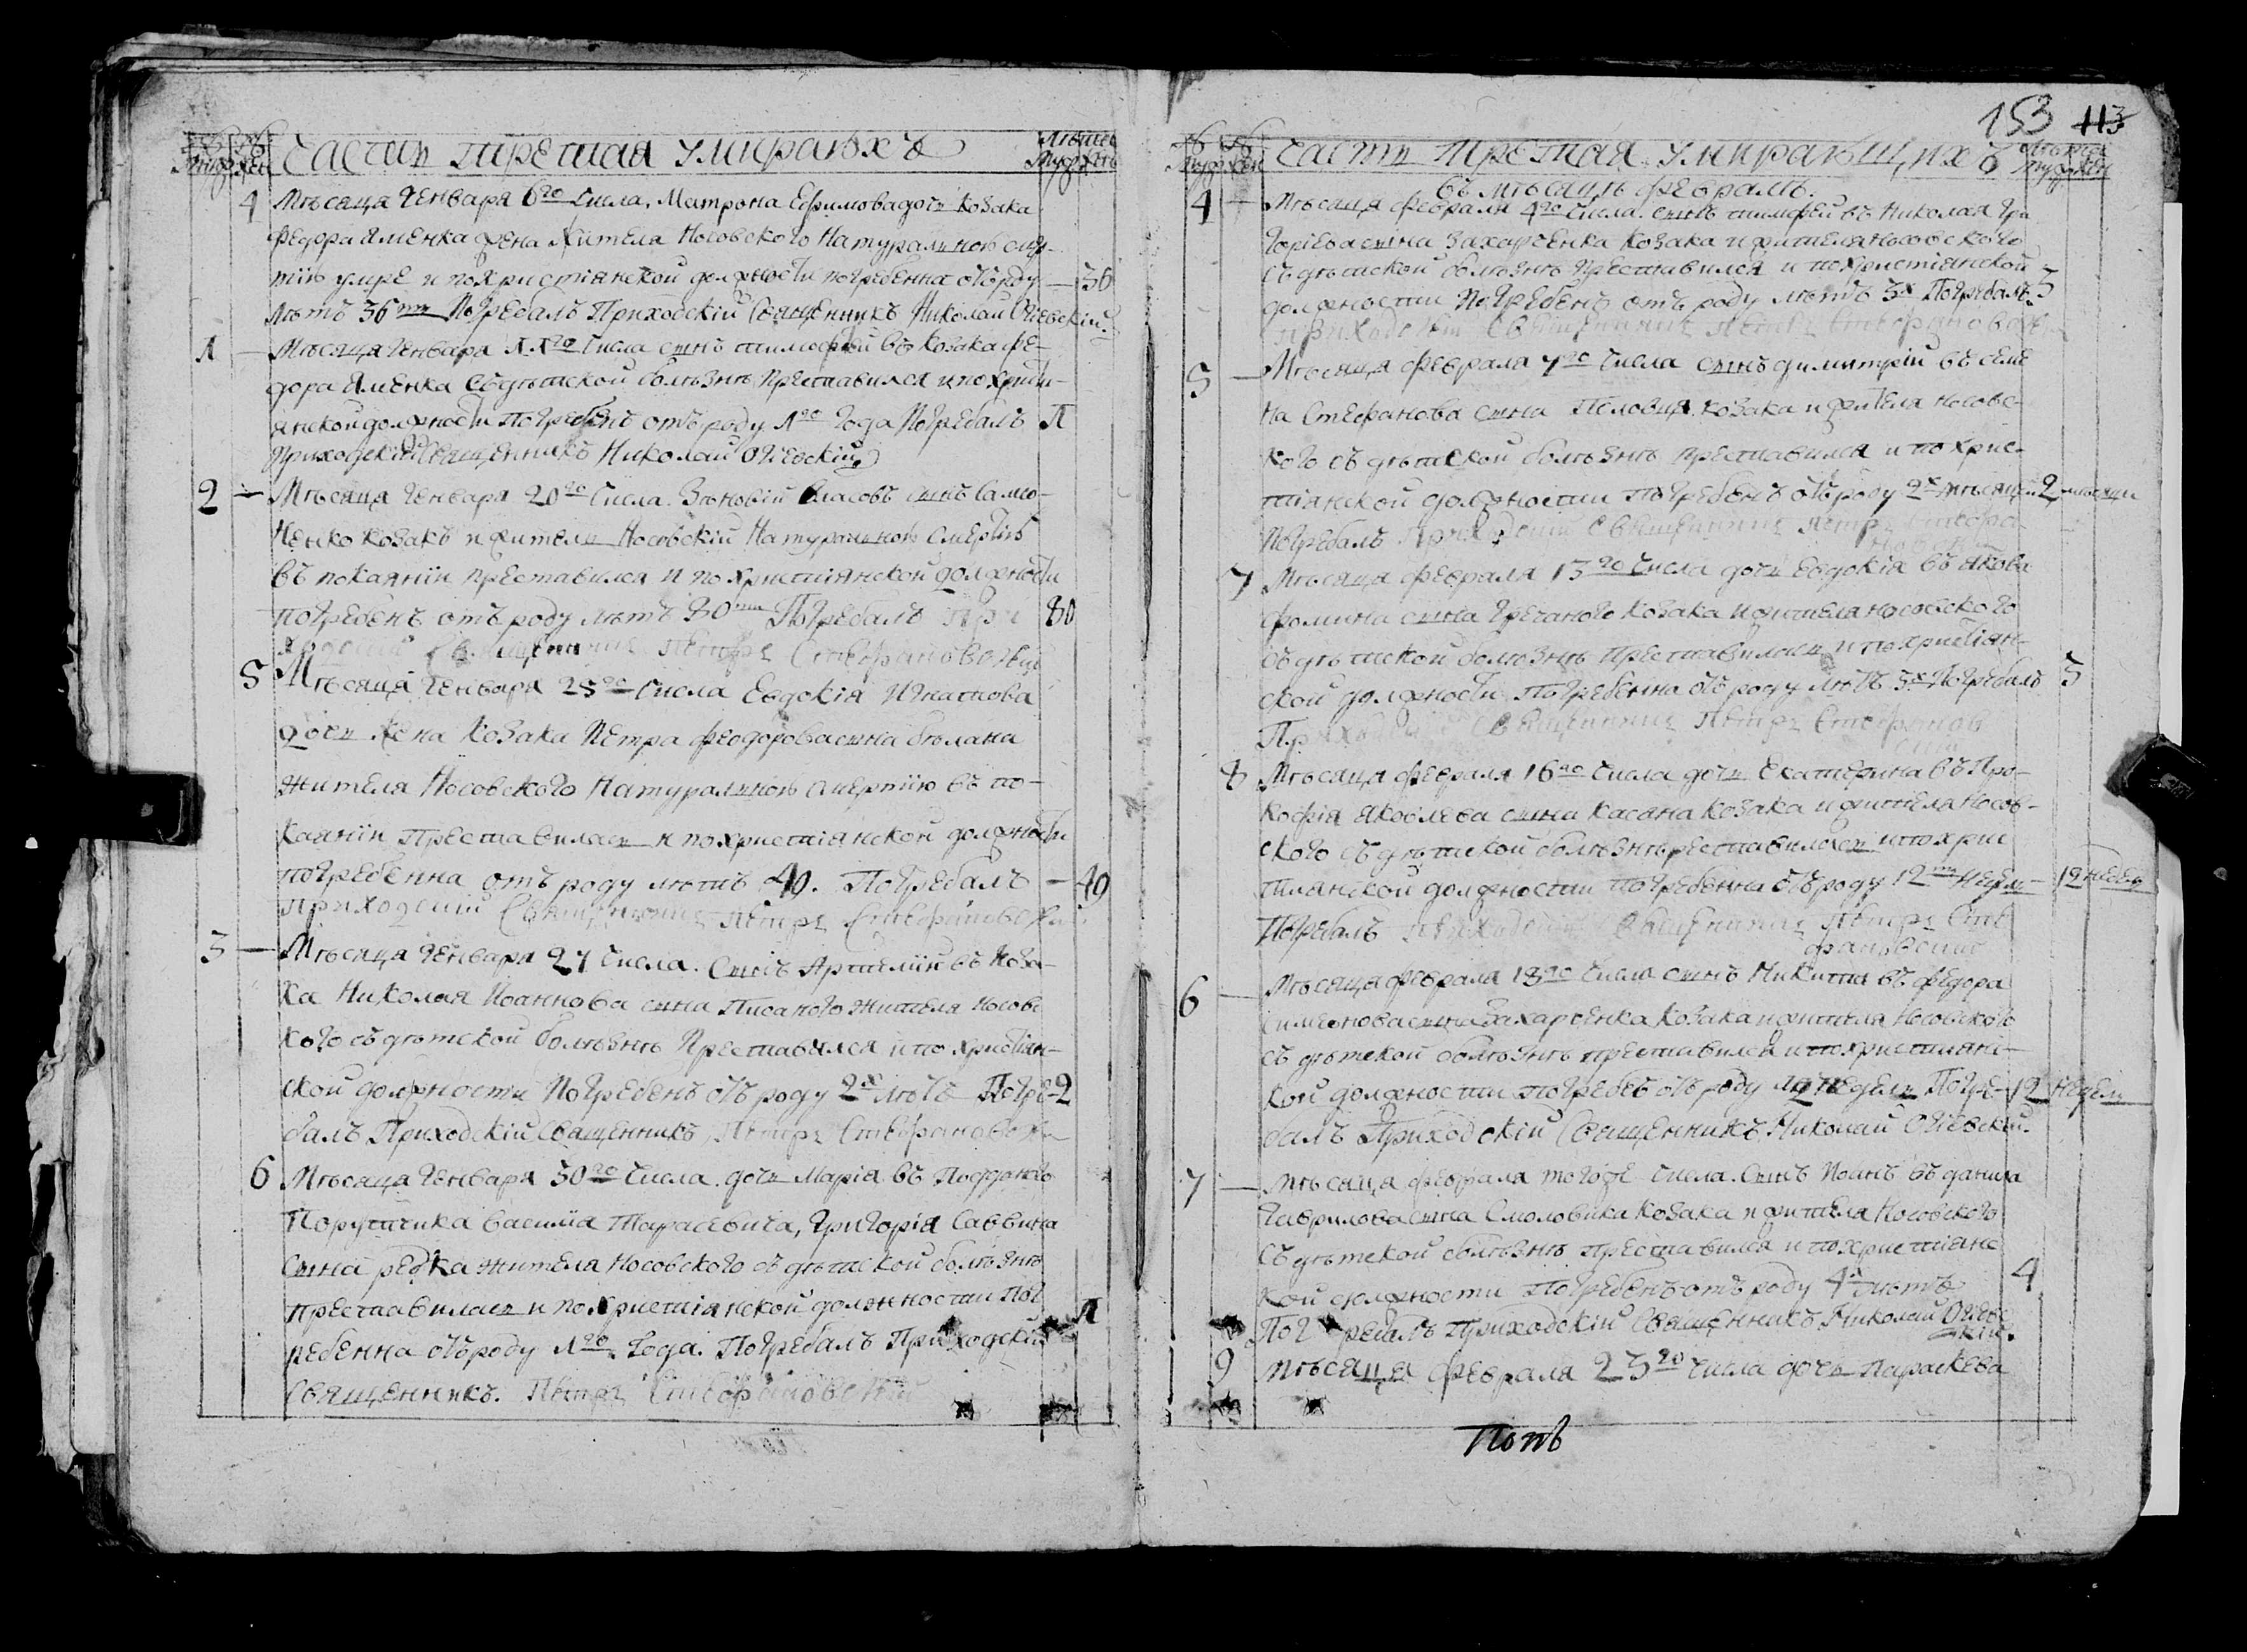 Части третая умираюхъ
Лѣтсъ
Муж жен
Муж жен
4 Мѣсяца Генваря 6го Числа. Матрона Ефимова дочь козака
Федора Яменка жена жителя Носовского Натуралною смер-
тію умре и похристіянской должности погребенна отъ роду — 36
лѣтъ 36ти Погребалъ Приходскій Священникъ Николай Огіевскій.
1 — Мѣсяца Генваря 11го Числа сынъ тимофей въ козака Фе-
дора Яменка съ дѣтской болѣзнѣ преставился и по христі-
янской должности погребенъ отъ роду 1го Года Погребалъ 1
Приходскій Священникъ Николай Огіевскій
2 — Мѣсяца Генваря 20го Числа. Зѣновій Власовъ сынъ Само-
ненко козакъ и жителъ Носовскій Натуралною Смертію
въ покаяніи преставился и по христіянской должности
погребенъ отъ роду лѣтъ 80ти Погребалъ При 80
ходскій Священникъ Петръ Стефановскій
5 Мѣсяца Генваря 25го Числа Евдокія Игнатова
дочь жена козака Петра Феодорова сына бѣлана
жителя Носовского Натуралною Смертію въ по-
каяніи Преставилась и по христіянской должности
погребенна отъ роду лѣтъ 40. Погребалъ — 40
приходскій Священникъ Петръ Стефановскій
3 — Мѣсяца Генваря 27 Числа. Сынъ Артемій въ Коза-
ка Николая Иоаннова сына Писаного жителя Носовс
кого съ дѣтской болѣзнѣ Преставился и по христіян-
ской должности Погребенъ отъ роду 2х лѣтъ Погре- 2
балъ Приходскій Священникъ Петръ Стефановскій
6 Мѣсяца Генваря 30го Числа. дочь Марія въ Подданого
Порутчика василіа Тарасевича, Григорія Саввина
Сына редка жителя Носовского съ дѣтской болѣзнѣ
преставилась и по христіянской должности Пог 1
ребенна отъ роду 1го Года. Погребалъ Приходскій
Священникъ. Петръ Стефановскій
153 113
Части третая умирающихъ
Муж жен
Муж жен
въ мѣсяцѣ Февралѣ.
4 — Мѣсяца Февраля 4го Числа. сынъ тимофей въ Николая Гри
горіева сына Захарченка козака и жителя Носовского
съ дѣтской болѣзнѣ преставился и по христіянской
должности Погребенъ отъ роду лѣтъ 3х Погребалъ 3
приходскій Священникъ Петръ Стефановскій
5 — Мѣсяца Февраля 7го Числа сынъ димитрій въ семе
на Стефанова сына Пѣловця козака и жителя Носовс-
кого съ дѣтской болѣзнѣ преставился и по хрис-
тіянской должности погребенъ отъ роду 2х мѣсяцей 2 мѣсяци
Погребалъ Приходскій Священникъ Петръ Стефа-
новскій
7 Мѣсяца Февраля 13го Числа дочь Евдокія въ якова
Фомина сына Гречаного козака и жителя Носовского
съ дѣтской болѣзнѣ преставиласъ и по христіян-
ской должности Погребенна отъ роду лѣтъ 3х Погребалъ 3
Приходскій Священникъ Петръ Стефанов
скій
8 Мѣсяца Февраля 16го Числа дочь Екатерина въ Про-
кофія яковлева сына Касяна козака и жителя Носов-
ского съ дѣтской болѣзнѣ преставилась и по хрис
тіянской должности погребенна отъ роду 12ти Недѣл — 12 недел
Погребалъ Приходскій Священникъ Петръ Сте
фановскій
6 — Мѣсяца Февраля 18го Числа сынъ Никита въ Федора
Симеонова сына Захарченка козака и жителя Носовского
съ дѣтской болѣзнѣ преставился и по христіянс-
кой должности погребенъ отъ роду 12 недѣль Погре- 12 Недель
балъ Приходскій Священникъ Николай Огіевскій.
7 — Мѣсяца Февраля того же Числа. Сынъ Иоанъ въ данила
Гаврилова сына Смоловика козака и жителя Носовского
съ дѣтской болѣзнѣ преставился и по христіянс
кой должности Погребенъ отъ роду 4х лѣтъ 4
Погребалъ Приходскій Священникъ Николай Огіевс
кій.
9 Мѣсяца Февраля 23го Числа дочь Параскева
Попъ